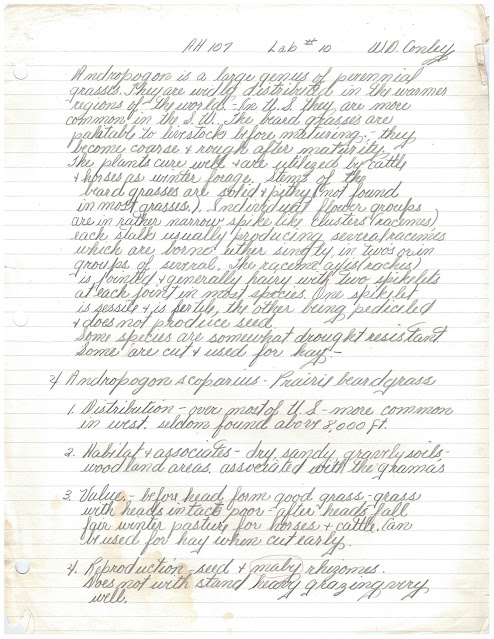 AH 107 Lab #10 W.D. Conley
Andropogon is a large genus of perennial
grasses. They are widly distributed in the warmer
regions of the world - In U.S. they are more
common in the S.W. The beard grasses are
palatable to livestock before maturing - they
become coarse & rough after maturity.
The plants cure well & are utilized by cattle
& horses as winter forage. Stems of the
beard grasses are solid & pithy (not found
in most grasses.). Individual flower groups
are in rather narrow, spike like clusters (racemes)
each stalk usually producing several racemes
which are borne either singly, in twos or in
groups of several. The raceme axis (rachis)
is jointed & generally hairy with two spikelets
at each joint in most species. One spikelet
is sessile & is fertile, the other being pediceled
& does not produce seed.
Some species are somewhat drought resistant
Some are cut & used for hay -
4 Andropogon scoparius - Prairie beardgrass
1. Distribution - over most of U.S - more common
in west. seldom found above 8,000 ft.
2. Habitat & associates - dry, sandy gravely soils -
woodland areas, associated with the gramas
3. Value - before head form good grass - grass
with heads intact poor - after heads fall
fair winter pasture for horses & cattle. Can
be used for hay when cut early.
4. Reproduction - seed & maby rhizomes.
Does not with stand heavy grazing very
well.